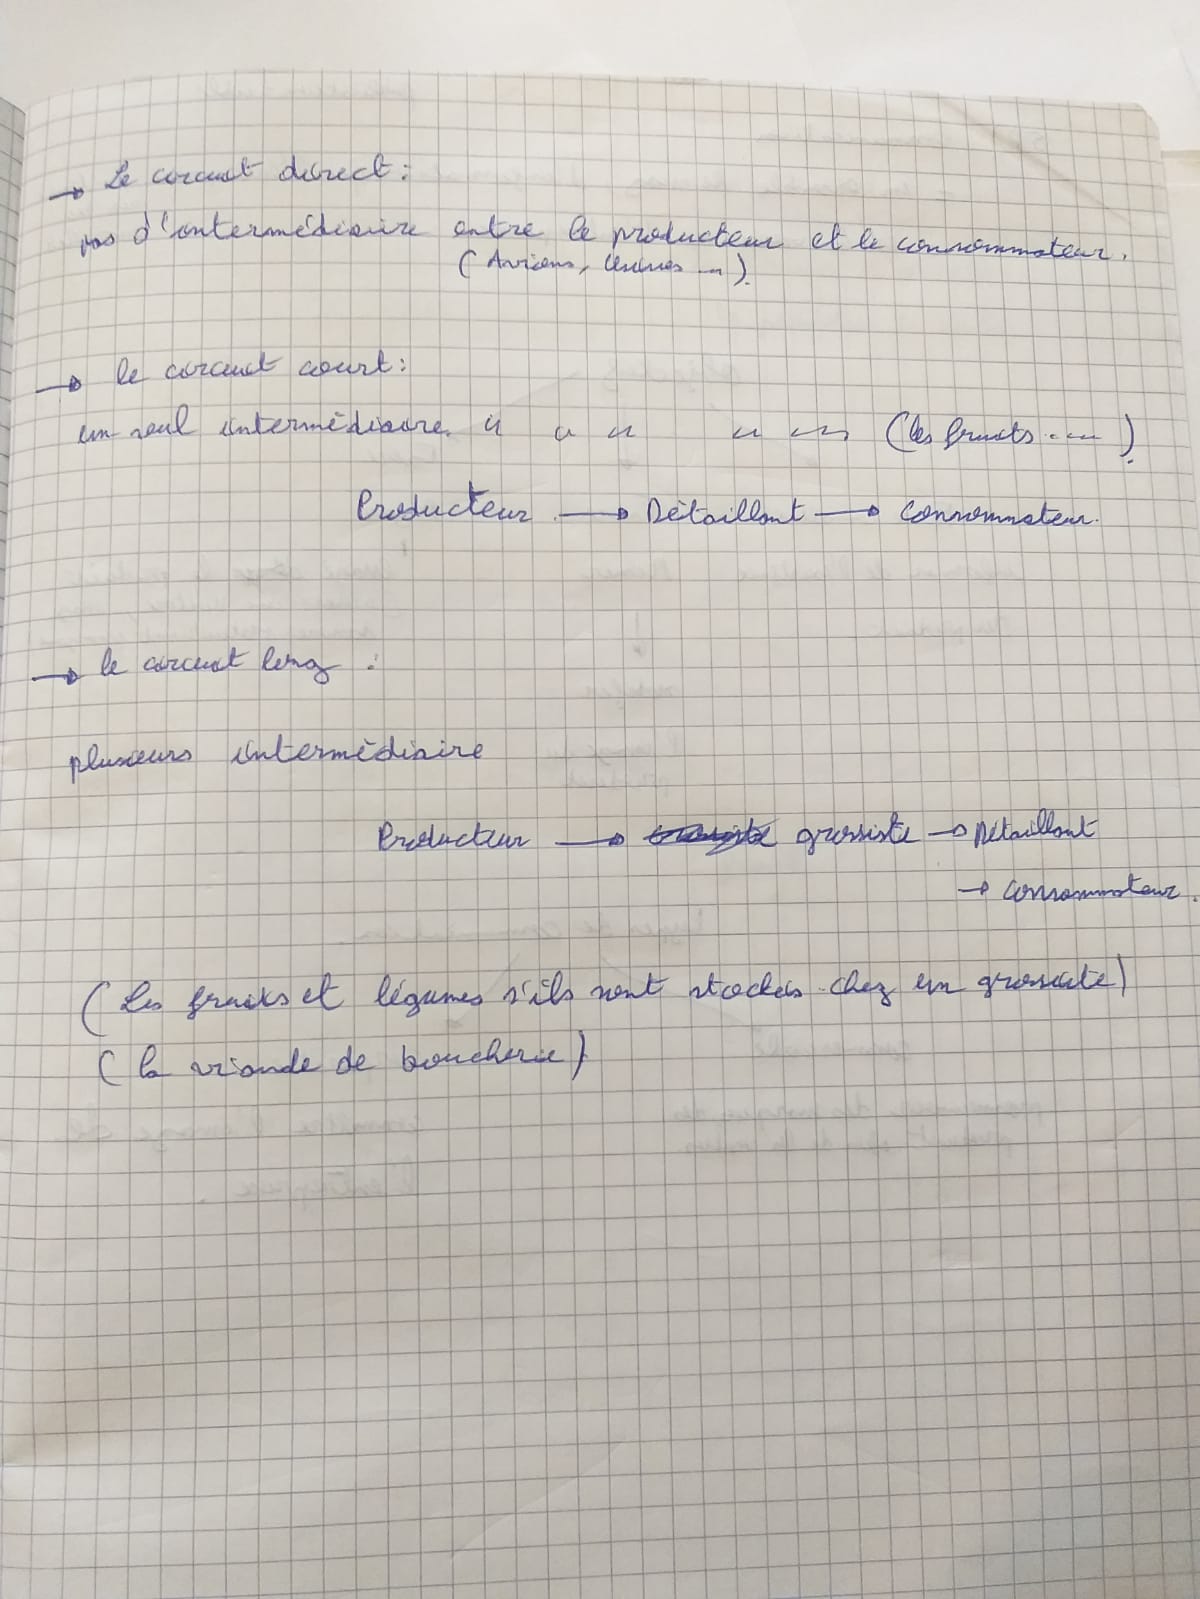 → Le circuit direct :
pas d'intermédiaire entre le producteur et le consommateur.
(Avions, Usines ...).
→ le circuit court :
un seul intermédiaire. " " " " " (les fruits ....).
Producteur → Détaillant → Consommateur.
→ le circuit long :
plusieurs intermédiaire
Producteur → grossiste → Détaillant
→ consommateur.
(Les fruits et légumes s'ils sont stockés chez un grossiste)
(la viande de boucherie)